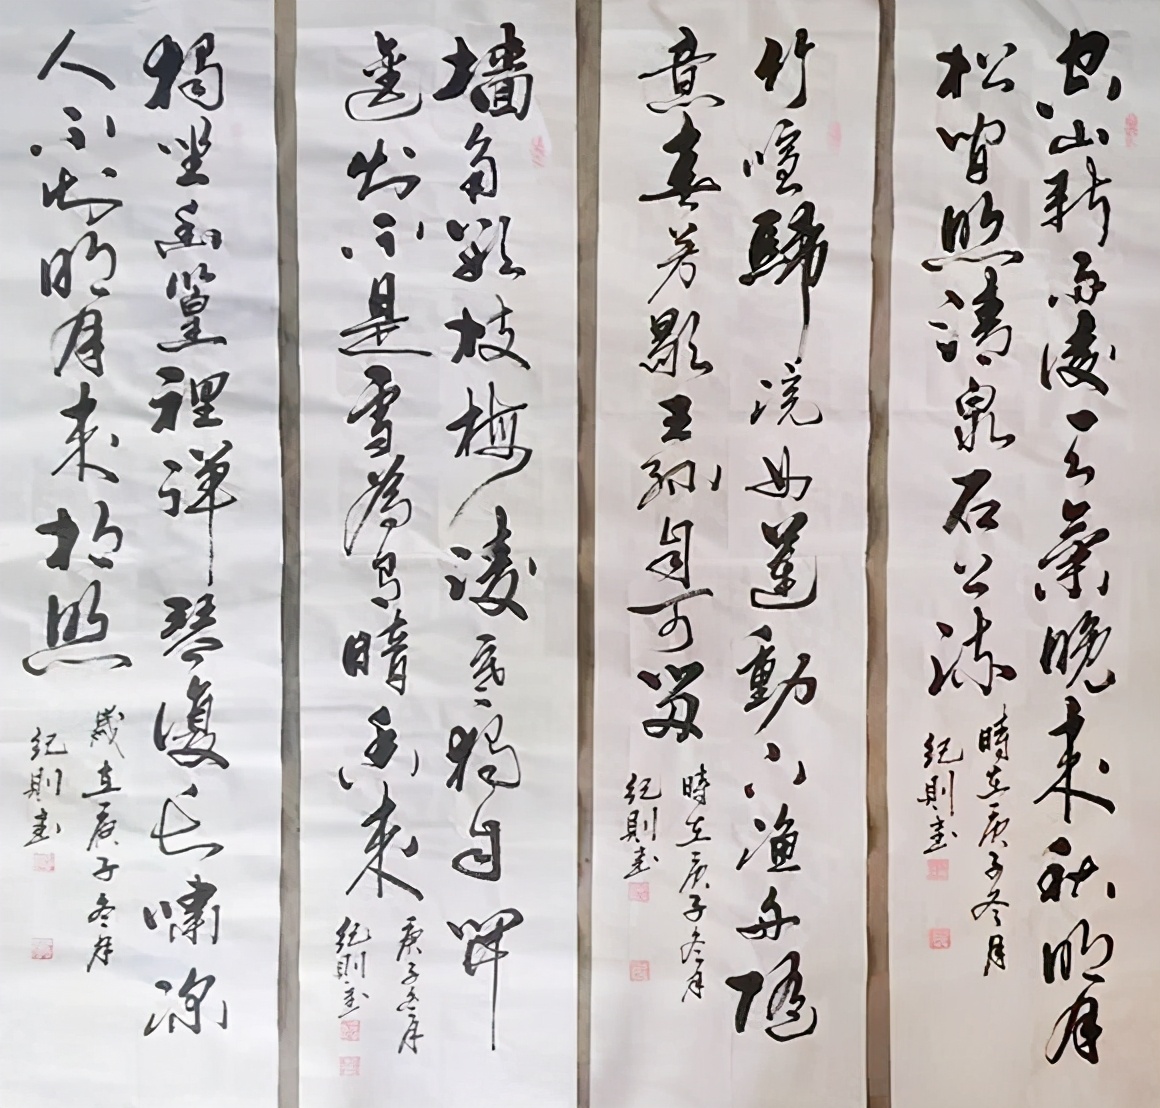 空山新雨後天氣晚来秋明月
松間照清泉石上流
時在庚子冬月
紀則書
竹喧歸浣女蓮動下渔舟随
意春芳歇王孫自可留
時在庚子冬月
紀則書
墙角數枝梅凌寒獨自開
遥知不是雪為有暗香来
庚子冬月
紀則書
獨坐幽篁裡弹琴復長嘯深林
人不知明月来相照
歲在庚子冬月
紀則書